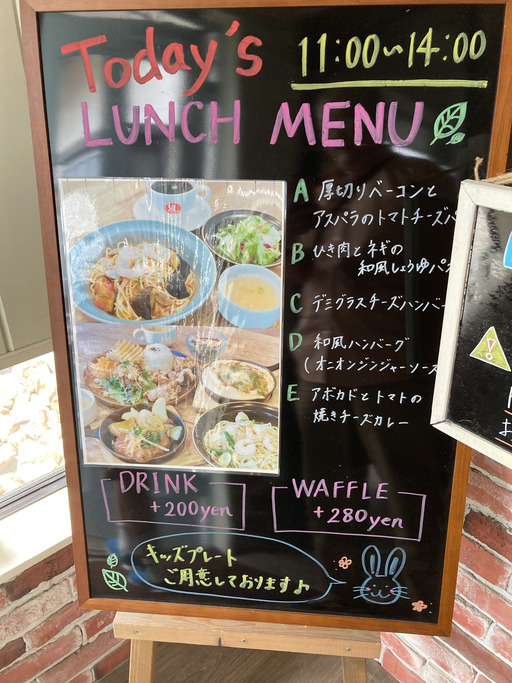 Today's 11:00~14:00
LUNCH MENU
A 厚切りベーコンと
アスパラのトマトチーズパ
B ひき肉とネギの
和風しょうゆパス
C デミグラスチーズハンバー
D 和風ハンバーグ
(オニオンジンジャーソース
E アボカドとトマトの
焼きチーズカレー
DRINK
+200yen
WAFFLE
+280yen
キッズプレート
ご用意しております♪